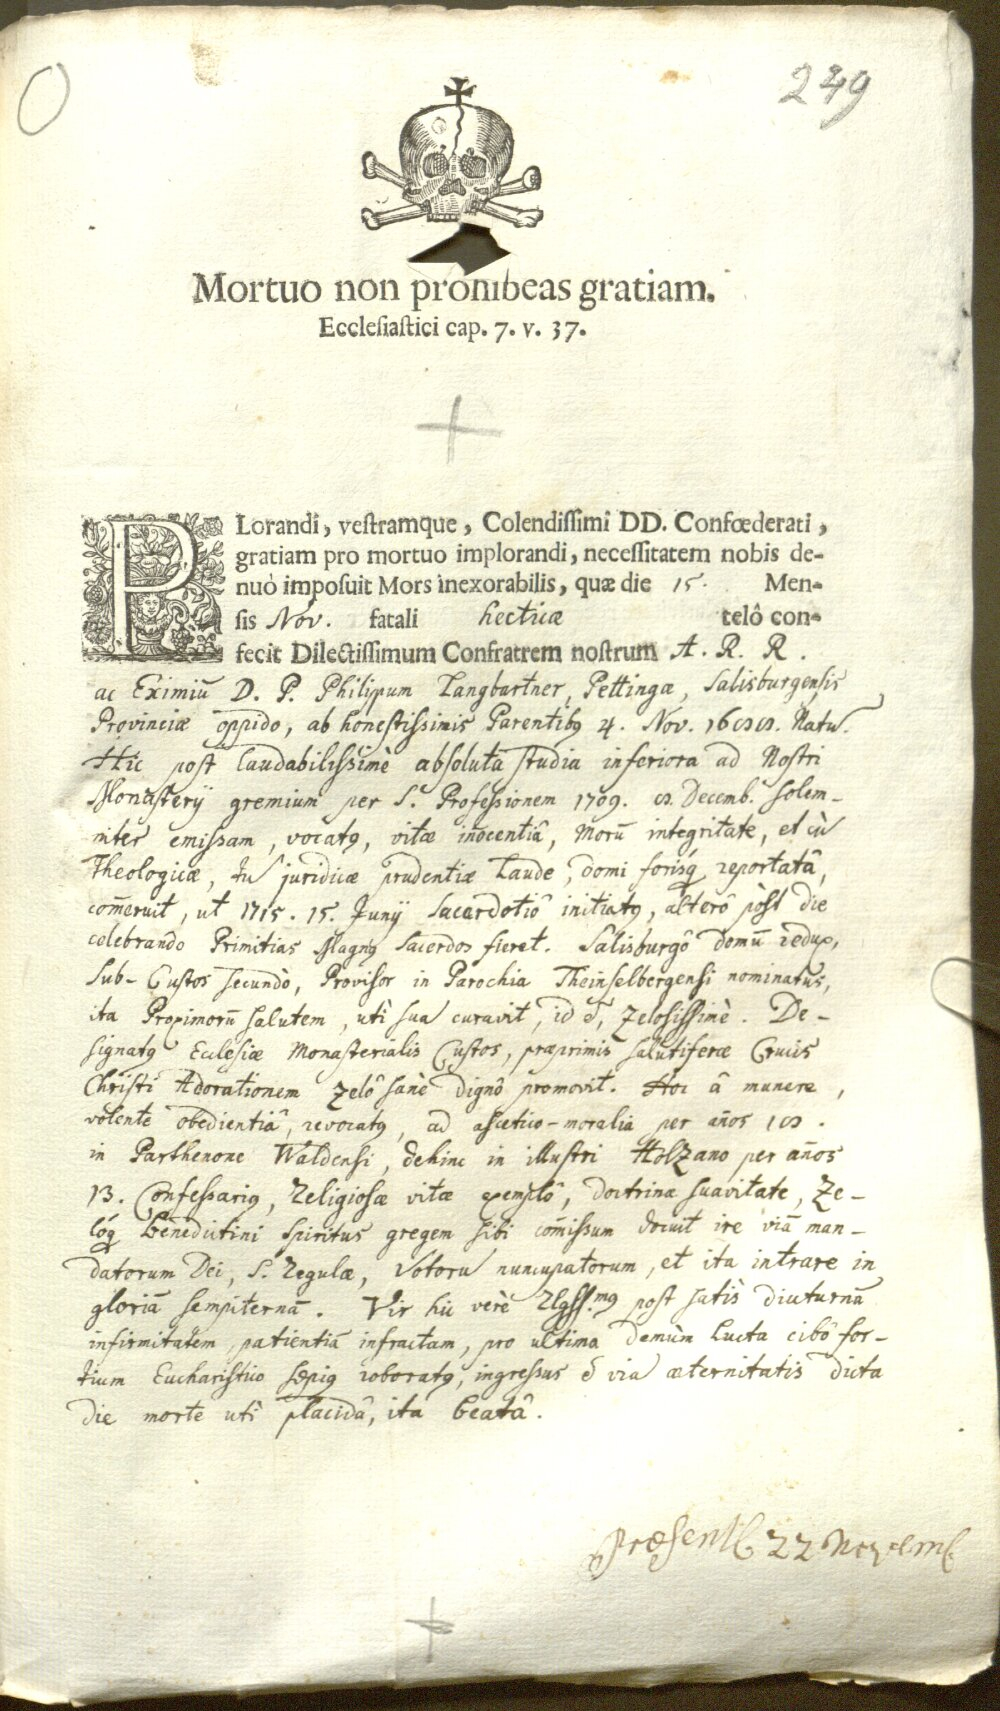 249
Mortuo non prohibeas gratiam.
Ecclesiastici cap. 7. v. 37.
PLorandi, vestramque, Colendissimi DD. Confœderati,
gratiam pro mortuo implorandi, necessitatem nobis de-
nuò imposuit Mors inexorabilis, quæ die 15. Men-
sis Nov. fatali hecticæ telô con-
fecit Dilectissimum Confratrem nostrum A. R. R.
ac Eximiū D. P. Philippum Langbartner, Pettingæ, Salisburgensis
Provinciæ oppido, ab honestissimis Parentibq 4. Nov. Natū.
Hic post laudabilissimè absoluta studia inferiora ad Nostri
Monasterÿ gremium per S. Professionem 1709. Decemb. solem-
niter emissam, vocatq, vitæ iñocentiâ, Morū integritate, et cū
Theologicæ, tū juridicæ prudentiæ Laude, domi forisq reportatâ,
com̄eruit, ut 1715. 15. Junÿ Sacerdotiô initiatq, alterô pòst die
celebrando Primitias Magnq Sacerdos fieret. Salisburgô domū redux,
Sub-Custos secundò, Provisor in Parochia Theinselbergensi nominatus,
ita Proximorū salutem, utì sua curavit, id ē, zelosissimè. De-
signatq Ecclesiæ Monasterialis Custos, præprimis salutiferæ Crucis
Christi Adorationem zelô sanè dignô promovit. Hoc â munere,
volente obedientiâ, revocatq, ad ascetico-moralia per años
in Parthenone Waldensi, dehinc in illustri Holzano per años
13. Confessariq, Religiosæ vitæ exemplô, doctrinæ suavitate, Ze-
lóq Benedictini Spiritus gregem sibi com̄issum docuit ire viā man-
datorum Dei, S. Regulæ, Votorū nuncupatorum, et ita intrare in
gloriā sempiternā. Vir hic verè Rlgss.mq post satìs diuturnā
infirmitatem, patientiā infractam, pro ultima demùm lucta cibô for-
tium Eucharistico sæpiq roboratq, ingressus ē via æternitatis dicta
die morte utì placidâ, ita beatâ.
22